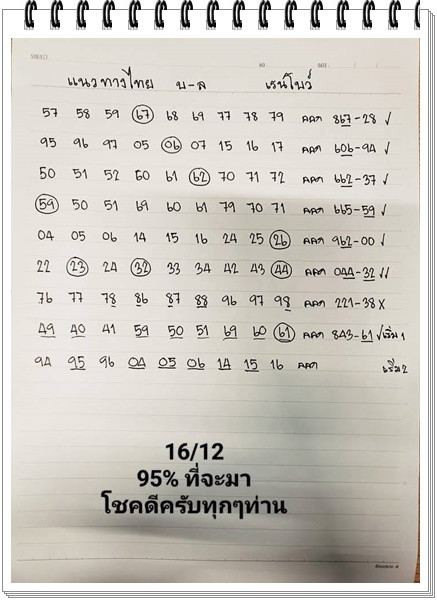 แนวทางไทย บ-ล เรนโบว์
57 58 59 67 68 69 77 78 79 ออก 867-28 ✓
95 96 97 05 06 07 15 16 17 ออก 606-94 ✓
50 51 52 60 61 62 70 71 72 ออก 662-37 ✓
59 50 51 69 60 61 79 70 71 ออก 665-59 ✓
04 05 06 14 15 16 24 25 26 ออก 962-00 ✓
22 23 24 32 33 34 42 43 44 ออก 044-32 ✓✓
76 77 78 86 87 88 96 97 98 ออก 221-38 X
49 40 41 59 50 51 69 60 61 ออก 843-61 ✓เริ่ม 1
94 95 96 04 05 06 14 15 16 ออก เริ่ม 2
16/12
95% ที่จะมา
โชคดีครับทุกๆท่าน